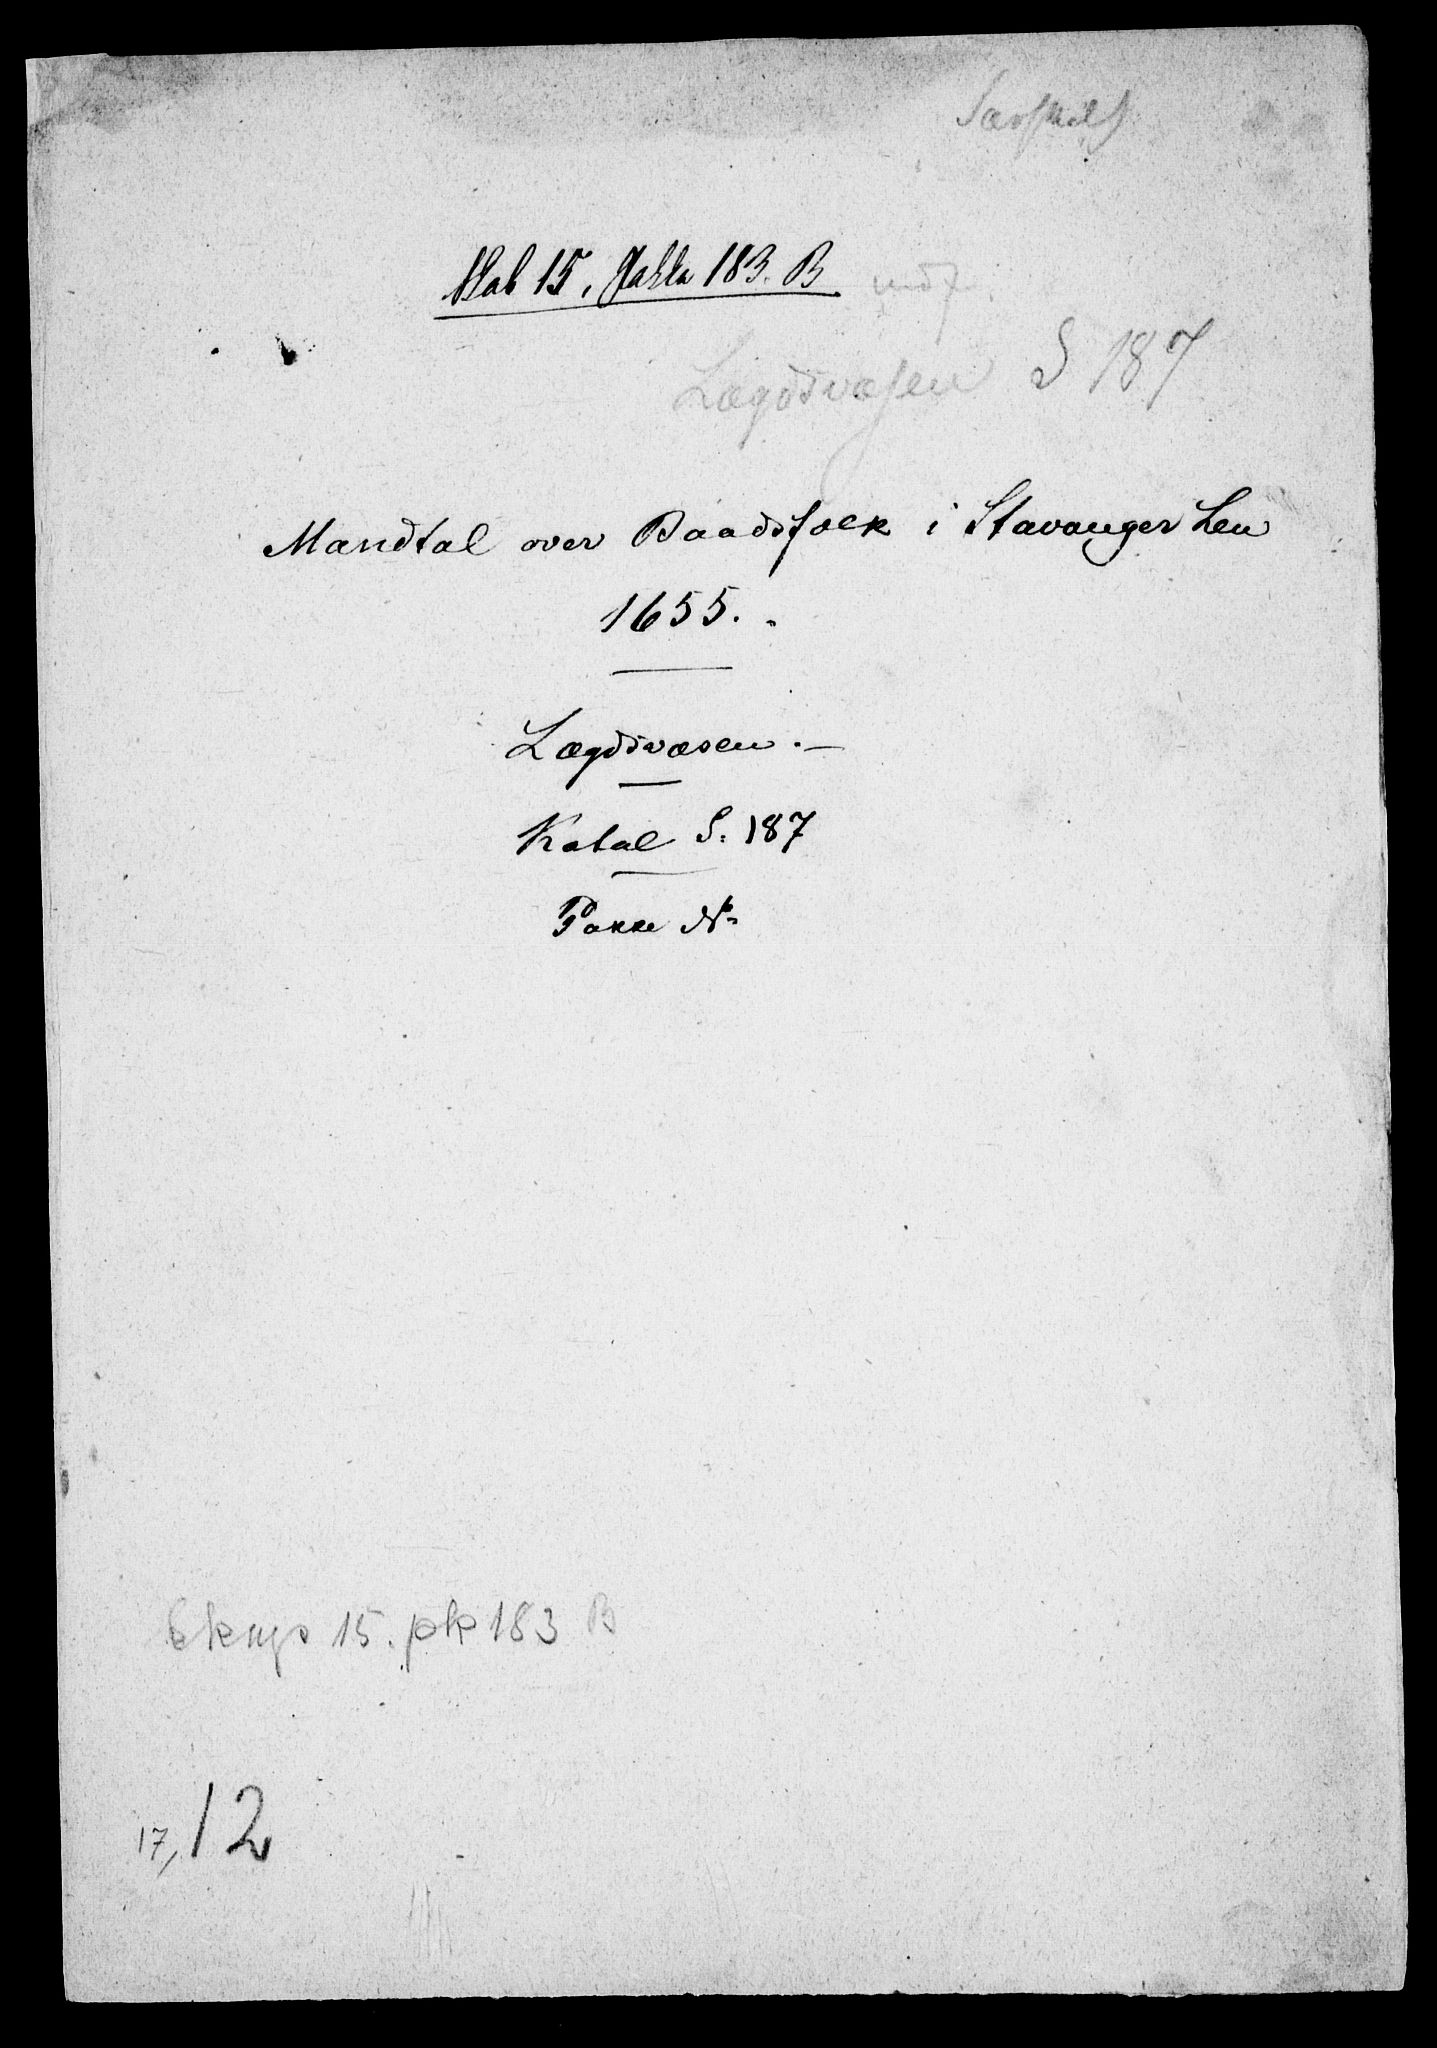 Skab 15. Pakke 183. B
Lægdsvæsen S 187
Mandtal over Baadsfolk i Stavanger Len
1655.
Lægdsvæsen. —
Katal S. 187
Pakke №
15. pk 183 B
17, 12